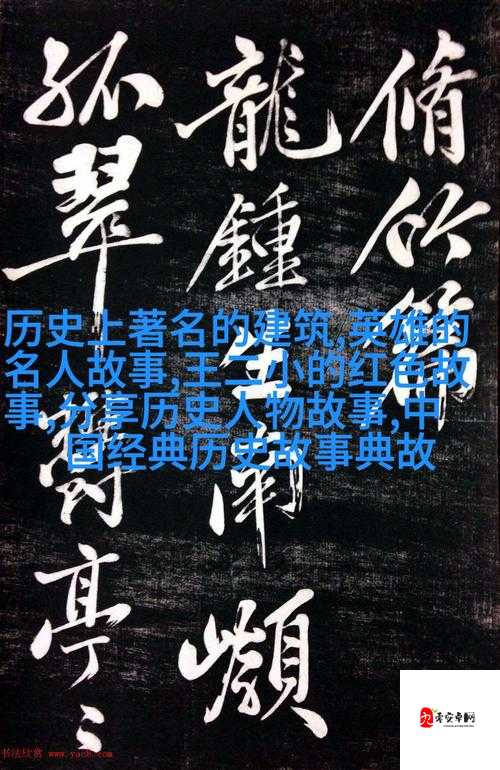 脩竹篇
龍鍾生南
孤翠鬱亭〻
历史上著名的建筑,英雄的
名人故事,王二小的红色故
事,分享历史人物故事,中
国经典历史故事典故
书法欣赏 www.yac8.com
零安卓网